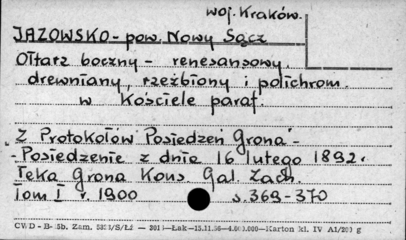 woj. Kraków.
JAZOWSKO - pow. Nowy Sącz
Ołtarz boczny - renesansowy.
drewniany, rzeźbiony i polichrom.
w Kościele paraf.
"Z Protokołów Posiedzeń Grona" -
- Posiedzenie z dnia 16 lutego 1892.
Teka Grona Kons Gal. Zach.
Tom I r. 1900 s. 369-370
CWD - B- 5b. Zam. — Łak — Karton kl. IV A1/200 g